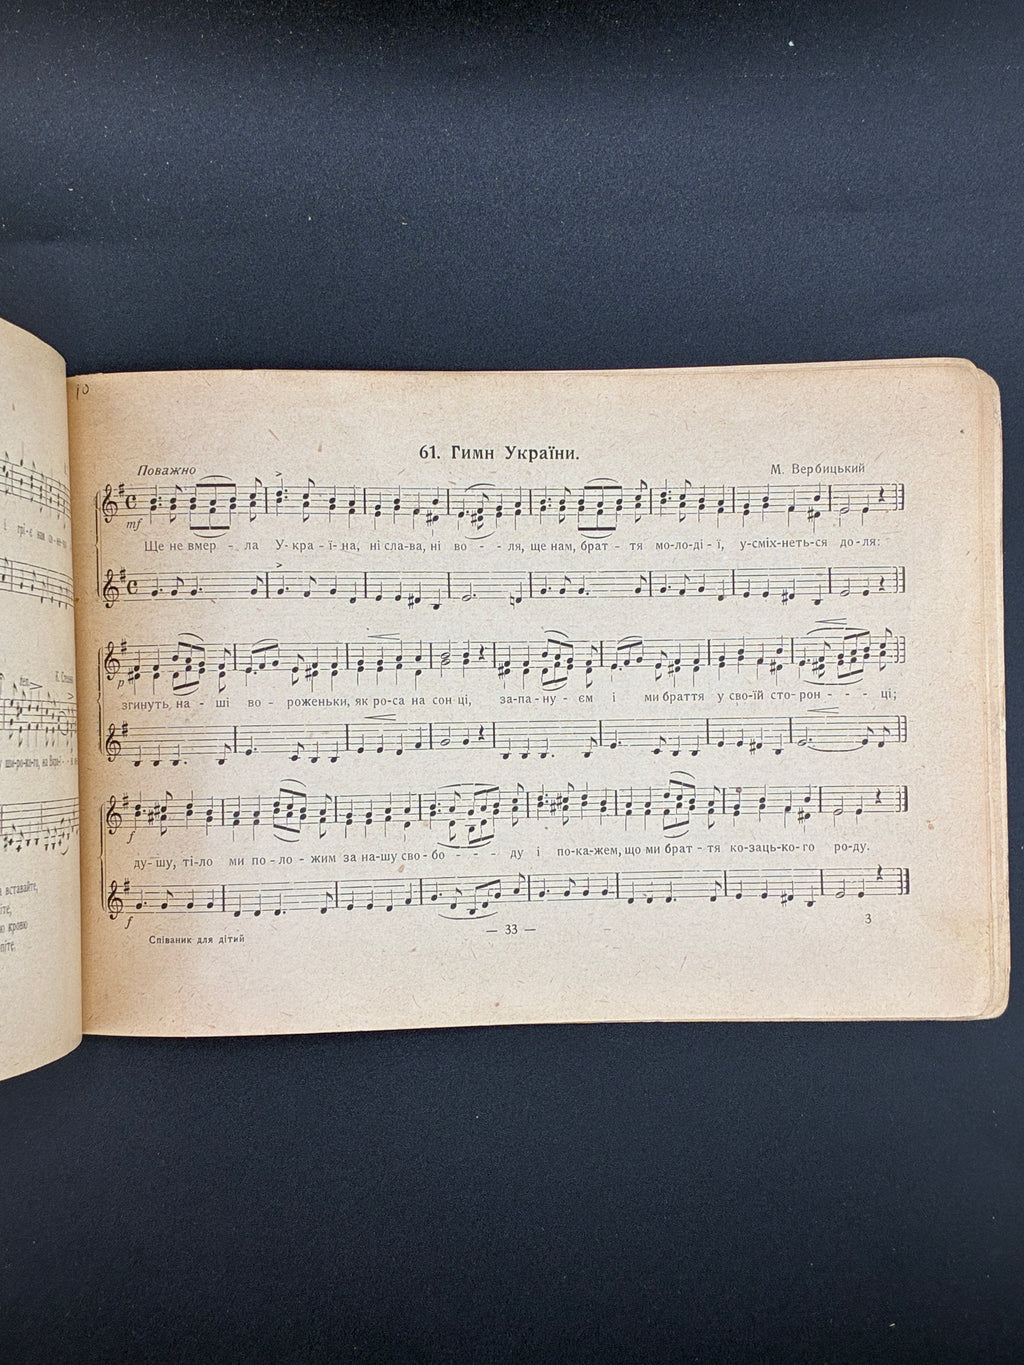 61. Гимн України.
Поважно
М. Вербицький
mf
Ще не вмер - ла У-кра-ї-на, ні сла-ва, ні во - - ля, ще нам, брат - тя мо-ло-ді-ї, у-сміх-неть-ся до-ля:
p
згинуть на - ші во - роженьки, як ро-са на сон-ці, за-па-ну-єм і ми браття у сво-їй сто-рон - - - ці;
f
ду-шу, ті-ло ми по-ло-жим за на-шу сво-бо - - - ду і по-ка-жем, що ми брат-тя ко-заць-ко-го ро-ду.
f
Співаник для дітий
— 33 —
3